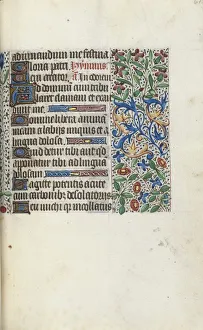 adiuuandum me festina
Gloria patri Hymnus.
Veni creator In idorem
Ad dominum cum tribu
larer clamaui et exau
diuit me
Domine libera animam
meam a labijs iniquis et a
lingua dolosa
Quid detur tibi aut quid
apponatur tibi ad linguam
dolosam
Sagitte potentis acute
cum carbonibus desolatorijs
Heu michi quia incolatus